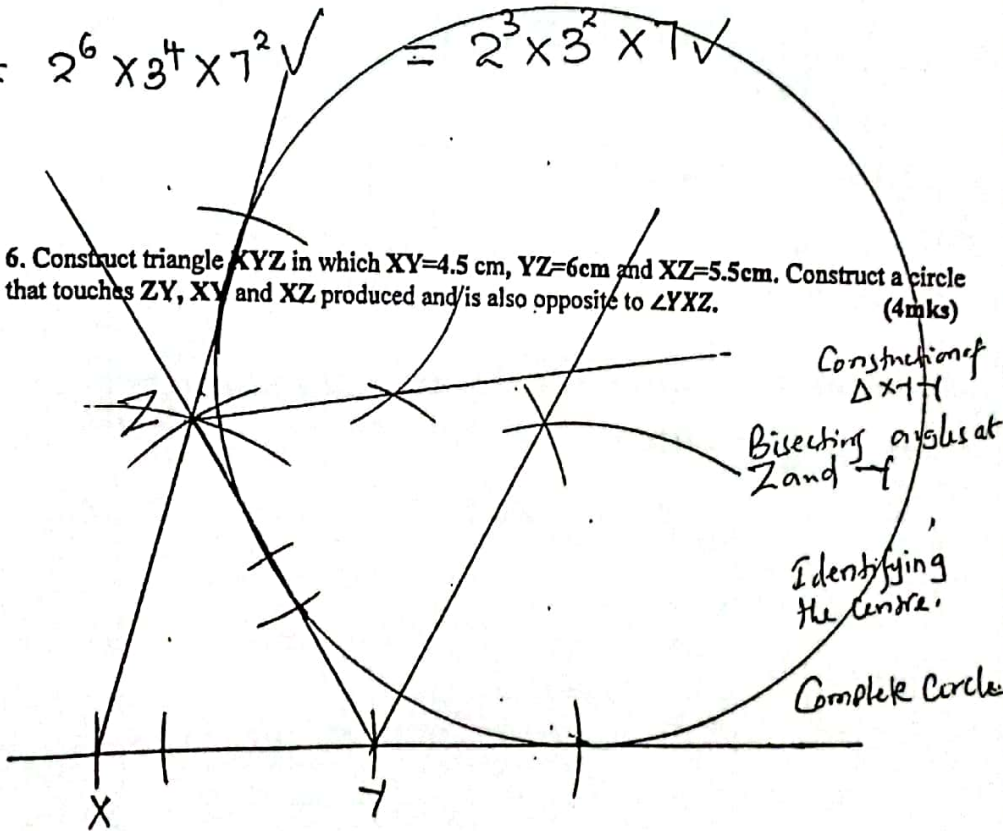 = 2⁶ × 3⁴ × 7² √
= 2³ × 3² × 7 √
6. Construct triangle XYZ in which XY=4.5 cm, YZ=6cm and XZ=5.5cm. Construct a circle
that touches ZY, XY and XZ produced and is also opposite to ∠YXZ.
(4mks)
Construction of
Δ XYZ
Bisecting angles at
Z and Y
Z
Identifying
the Centre.
Complete Circle
X
Y